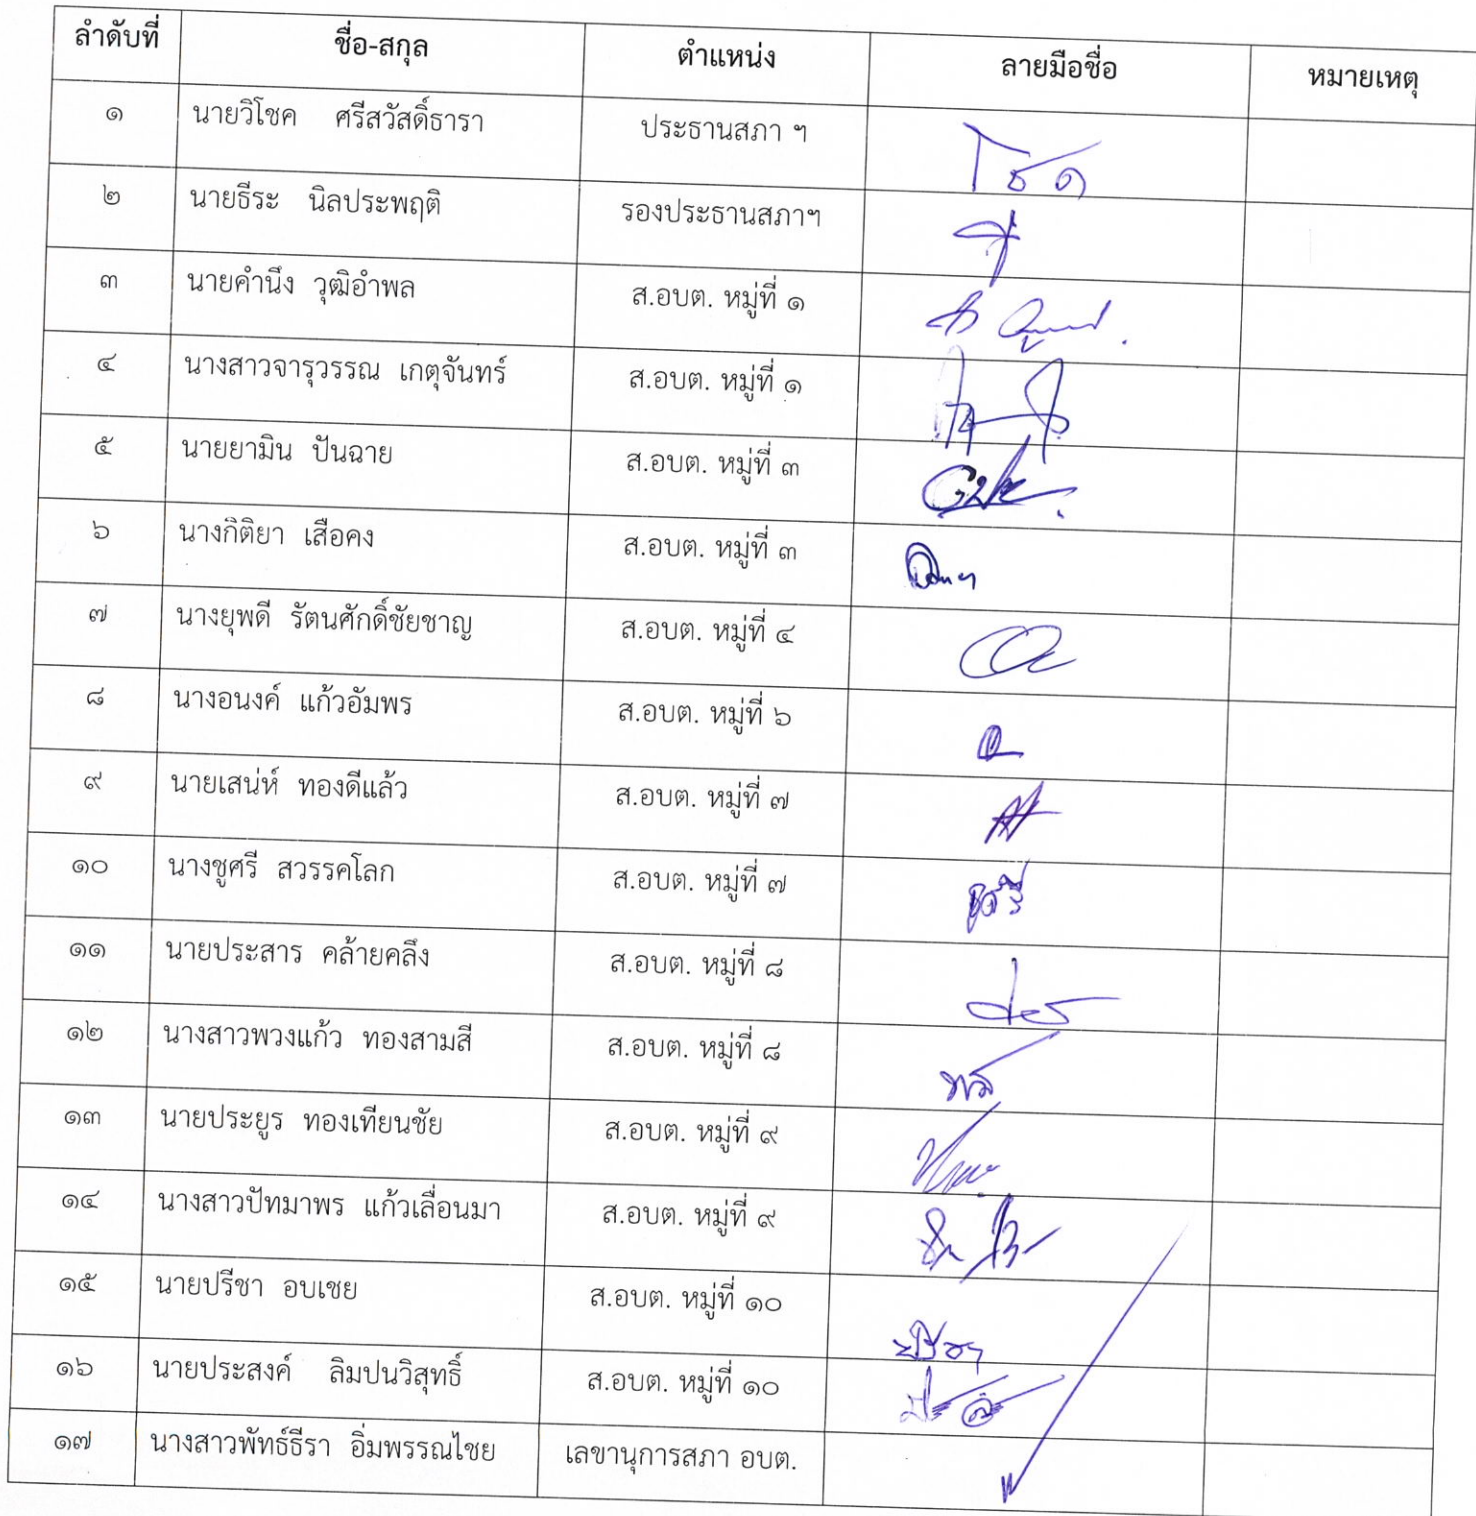 ลำดับที่ ชื่อ-สกุล ตำแหน่ง ลายมือชื่อ หมายเหตุ
๑ นายวิโชค ศรีสวัสดิ์ธารา ประธานสภา ฯ โชค
๒ นายธีระ นิลประพฤติ รองประธานสภาฯ
๓ นายคำนึง วุฒิอำพล ส.อบต. หมู่ที่ ๑
๔ นางสาวจารุวรรณ เกตุจันทร์ ส.อบต. หมู่ที่ ๑
๕ นายยามิน ปันฉาย ส.อบต. หมู่ที่ ๓
๖ นางกิติยา เสือคง ส.อบต. หมู่ที่ ๓
๗ นางยุพดี รัตนศักดิ์ชัยชาญ ส.อบต. หมู่ที่ ๔
๘ นางอนงค์ แก้วอัมพร ส.อบต. หมู่ที่ ๖
๙ นายเสน่ห์ ทองดีแล้ว ส.อบต. หมู่ที่ ๗
๑๐ นางชูศรี สวรรคโลก ส.อบต. หมู่ที่ ๗ ชูศรี
๑๑ นายประสาร คล้ายคลึง ส.อบต. หมู่ที่ ๘
๑๒ นางสาวพวงแก้ว ทองสามสี ส.อบต. หมู่ที่ ๘
๑๓ นายประยูร ทองเทียนชัย ส.อบต. หมู่ที่ ๙
๑๔ นางสาวปัทมาพร แก้วเลื่อนมา ส.อบต. หมู่ที่ ๙
๑๕ นายปรีชา อบเชย ส.อบต. หมู่ที่ ๑๐
๑๖ นายประสงค์ ลิมปนวิสุทธิ์ ส.อบต. หมู่ที่ ๑๐
๑๗ นางสาวพัทธ์ธีรา อิ่มพรรณไชย เลขานุการสภา อบต.